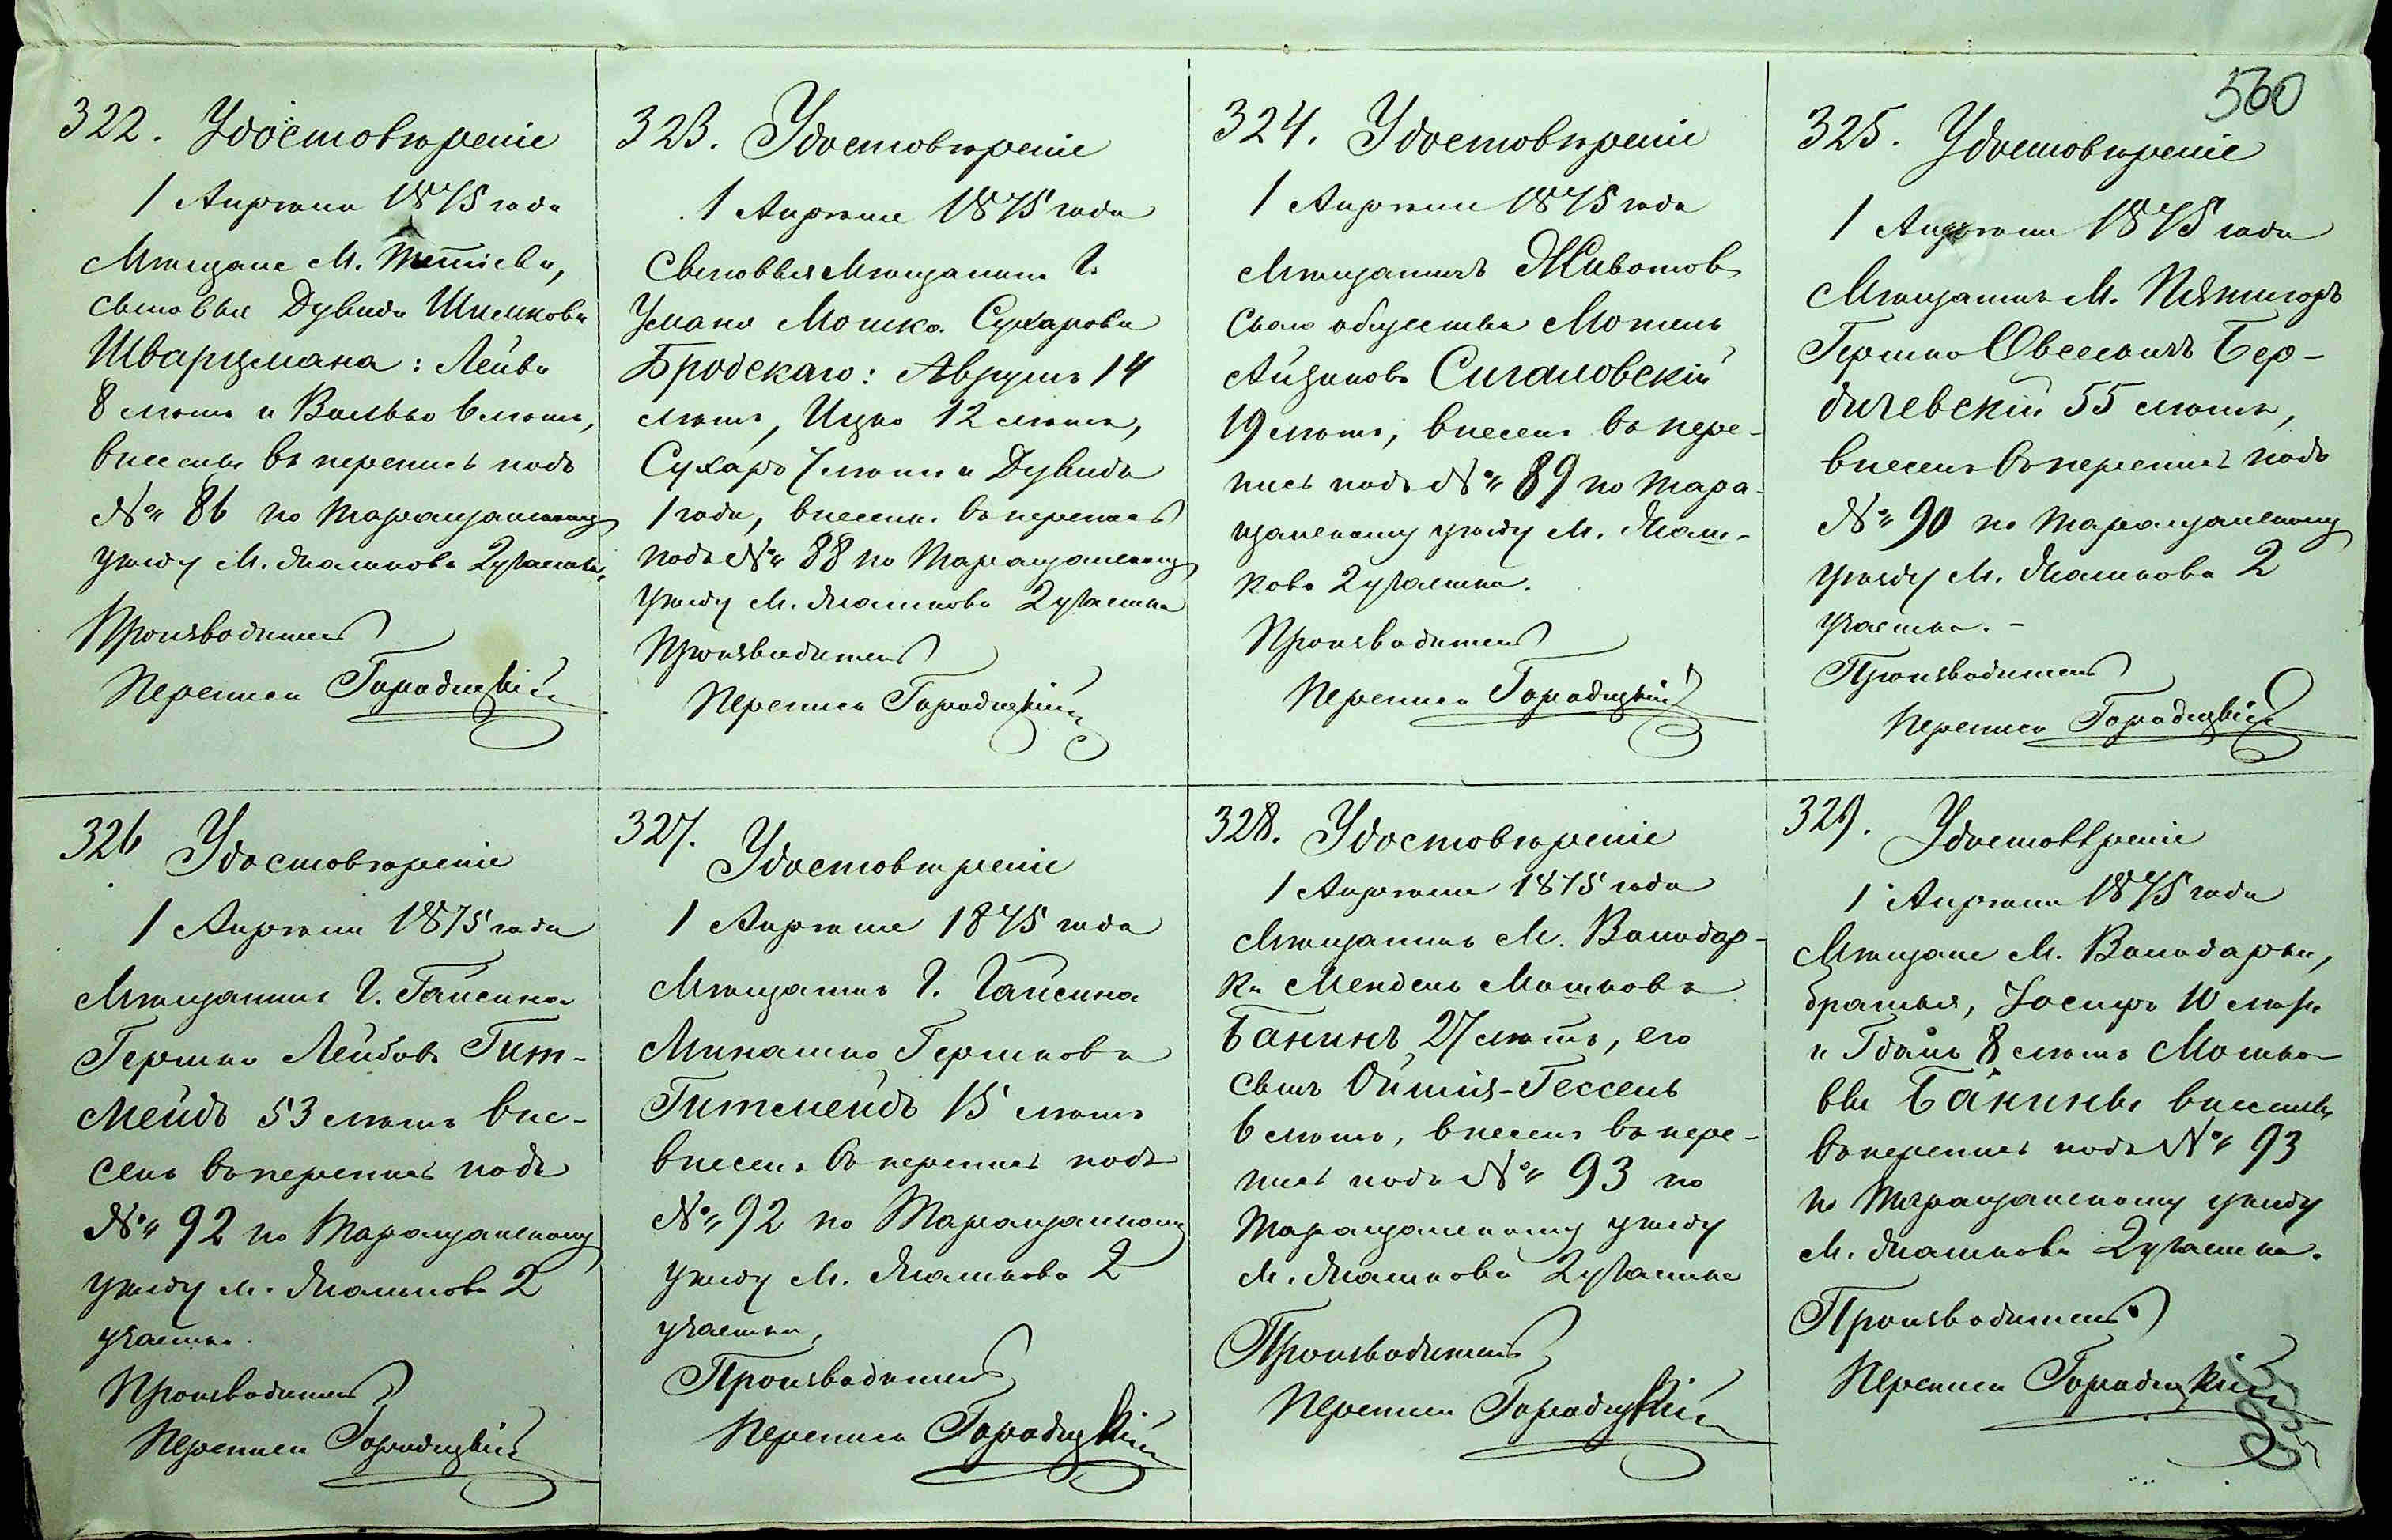 560
322. Удостовѣреніе
1 Апрѣля 1875 года
Мѣщане М. Тетіева,
сыновья Дувида Шмилкова
Шварцмана: Лейба
8 лѣтъ и Волько 6 лѣтъ,
внесены въ перепись подъ
№ 86 по Таращанскому
уѣзду М. Жашкова 2 участка,
Производитель
Переписи Городецкій
323. Удостовѣреніе
1 Апрѣля 1875 года
Сыновья Мѣщанина Г.
Умани Мошка Сухарова
Бродскаго: Аврумъ 14
лѣтъ, Ицко 12 лѣтъ,
Сухаръ 7 лѣтъ и Дувидъ
1 года, внесены въ перепись
подъ № 88 по Таращанскому
уѣзду М. Жашкова 2 участка
Производитель
Переписи Городецкій
324. Удостовѣреніе
1 Апрѣля 1875 года
Мѣщанинъ Животов
скаго общества Мотель
Айзиковъ Сигаловскій
19 лѣтъ, внесенъ въ пере-
пись подъ № 89 по Тара-
щанскому уѣзду М. Жаш-
кова 2 участка.
Производитель
Переписи Городецкій
325. Удостовѣреніе
1 Апрѣля 1875 года
Мѣщанинъ М. Пятигоръ
Гершко Овсеевичъ Бер-
дичевскій 55 лѣтъ,
внесенъ въ перепись подъ
№ 90 по Таращанскому
уѣзду М. Жашкова 2
участка. -
Производитель
Переписи Городецкій
326 Удостовѣреніе
1 Апрѣля 1875 года
Мѣщанинъ Г. Гайсина
Гершко Лейбовъ Гит-
мейдъ 53 лѣтъ вне-
сенъ въ перепись подъ
№ 92 по Таращанскому
уѣзду М. Жашкова 2
участка.
Производитель
Переписи Городецкій
327. Удостовѣреніе
1 Апрѣля 1875 года
Мѣщанинъ Г. Гайсина
Гершкова
15 лѣтъ
внесенъ въ перепись подъ
№ 92 по Таращанскому
уѣзду М. Жашкова 2
участка,
Производитель
Переписи Городецкій
328. Удостовѣреніе
1 Апрѣля 1875 года
Мѣщанинъ М. Володар-
ки Мендель Мошкова
Банинъ 27 лѣтъ, его
сынъ
6 лѣтъ, внесенъ въ пере-
пись подъ № 93 по
Таращанскому уѣзду
М. Жашкова 2 участка
Производитель
Переписи Городецкій
329. Удостовѣреніе
1 Апрѣля 1875 года
Мѣщане М. Володарки,
братья, Іосифъ 10 лѣтъ
и Гдаль 8 лѣтъ Мошко-
вы Банины внесены
въ перепись подъ № 93
по Таращанскому уѣзду
М. Жашкова 2 участка.
Производитель
Переписи Городецкій